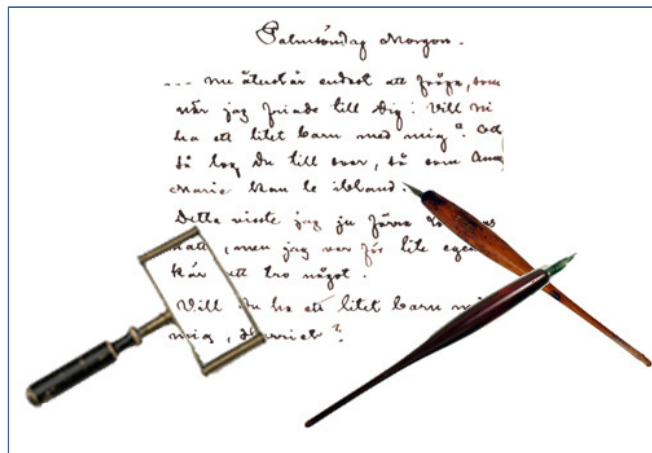 Palmsöndag Morgon.
---- nu återstår endast att fråga, som
när jag friade till Dig: Vill Ni
ha ett litet barn med mig? Och
så log Du till svar, så som Anna
Marie kan le ibland.
Detta visste jag ju förra
natt, men jag var för lite egen
kär att tro något.
Vill Du ha ett litet barn
mig, Harriet?